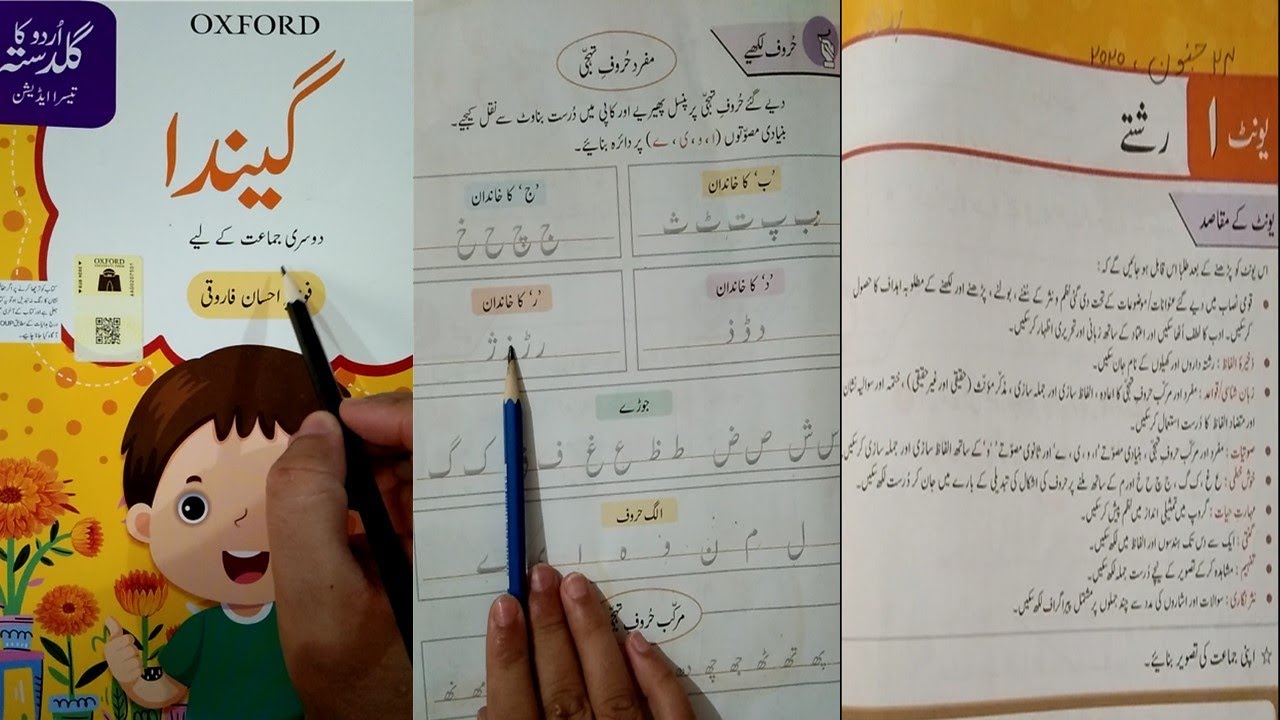 اُردو کا
گلدستہ
تیسرا ایڈیشن
OXFORD
گیندا
دوسری جماعت کے لیے
احسان فاروقی
OXFORD
حُروف لکھیے
مفرد حُروفِ تہجّی
دیے گئے حُروفِ تہجّی پر پنسل پھیریے اور کاپی میں دُرست بناوٹ سے نقل کیجیے۔
بنیادی مصوّتوں (ا، و، ی، ے) پر دائرہ بنائیے۔
'ب' کا خاندان
ب پ ت ٹ ث
'ج' کا خاندان
ج چ ح خ
'د' کا خاندان
د ڈ ذ
'ر' کا خاندان
ر ڑ ز ژ
جوڑے
س ش ص ض ط ظ ع غ ف ق ک گ
الگ حروف
ل م ن و ہ ء ے
مرکّب حُروفِ تہجّی
پھ تھ ٹھ جھ چھ دھ
۲۴ جنون، ۲۰۲۰
یونٹ ۱ رشتے
یونٹ کے مقاصد
اس یونٹ کو پڑھنے کے بعد طلبا اس قابل ہو جائیں گے کہ:
قومی نصاب میں دیے گئے عنوانات/موضوعات کے تحت دی گئی نظم و نثر کے سُننے، بولنے، پڑھنے اور لکھنے کے مطلوبہ اہداف کا حصول
کر سکیں۔ ادب کا لطف اُٹھا سکیں اور اعتماد کے ساتھ زبانی اور تحریری اظہار کر سکیں۔
ذخیرۂ الفاظ: رشتے داروں اور کھیلوں کے نام جان سکیں۔
زبان شناسی/قواعد: مفرد اور مرکّب حروفِ تہجّی کا اعادہ، الفاظ سازی اور جملہ سازی، مذکّر مؤنّث (حقیقی اور غیر حقیقی)، ختمہ اور سوالیہ نشان
اور متضاد الفاظ کا دُرست استعمال کر سکیں۔
صوتیات: مفرد اور مرکّب حروفِ تہجّی، بنیادی مصوّتے 'ا، و، ی، ے' اور ثانوی مصوّتے 'وُ' کے ساتھ الفاظ سازی اور جملہ سازی کر سکیں۔
خوش خطی: ع غ، ک گ، ج چ ح خ اور م کے ساتھ ملنے پر حروف کی اشکال کی تبدیلی کے بارے میں جان کر دُرست لکھ سکیں۔
مہارتِ حیات: گروپ میں تمثیلی انداز میں نظم پیش کر سکیں۔
گنتی: ایک سے اس تک ہندسوں اور الفاظ میں لکھ سکیں۔
تفہیم: مشاہدہ کر کے تصویر کے نیچے دُرست جملہ لکھ سکیں۔
نثر نگاری: سوالات اور اشاروں کی مدد سے چند جملوں پر مشتمل پیراگراف لکھ سکیں۔
☆ اپنی جماعت کی تصویر بنائیے۔